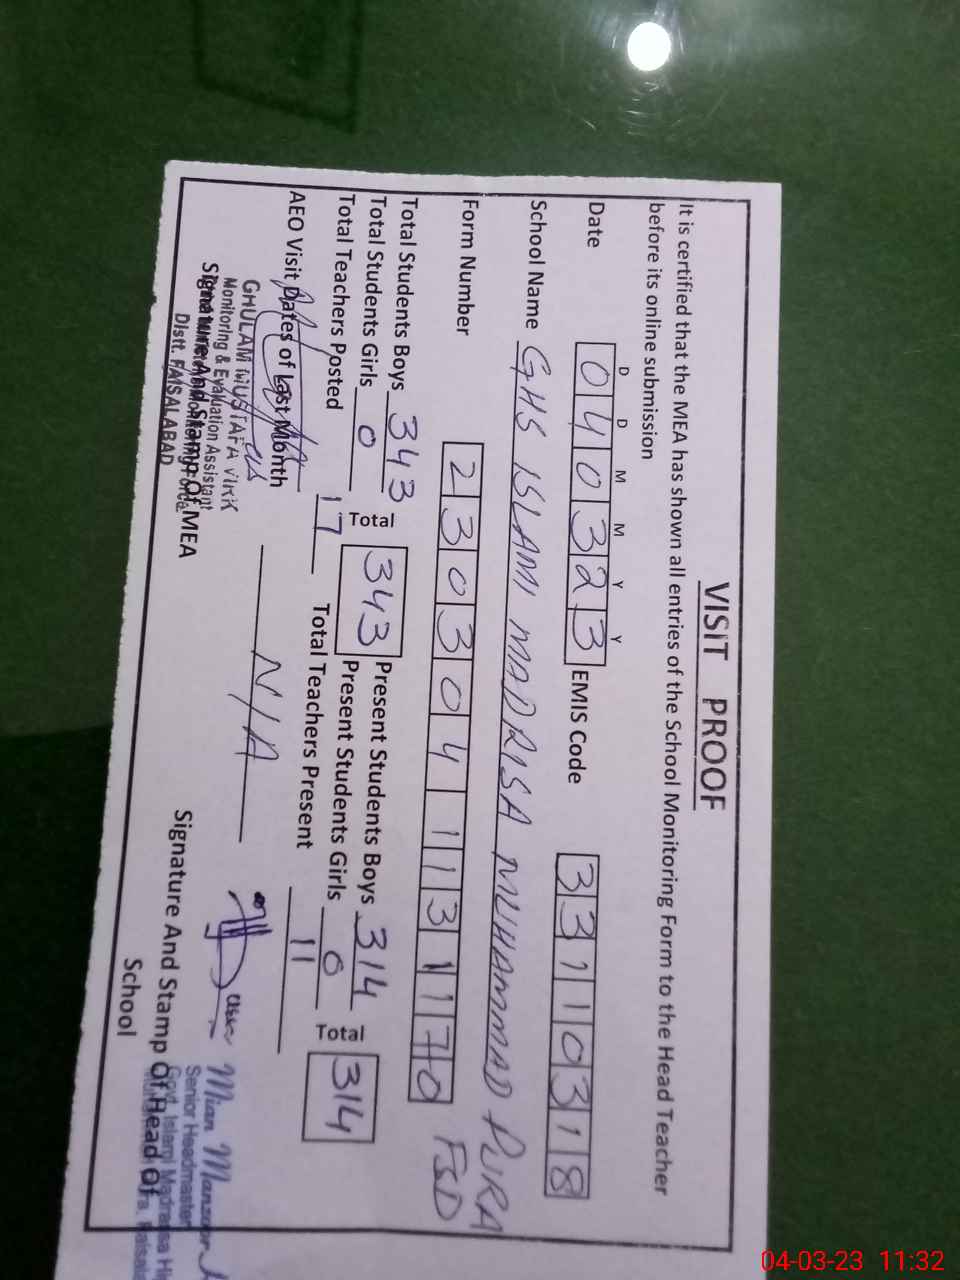 VISIT PROOF
It is certified that the MEA has shown all entries of the School Monitoring Form to the Head Teacher
before its online submission
D D M M Y Y
Date 040323 EMIS Code 33110318
School Name GHS ISLAMI MADRISA MUHAMMAD PURA
FSD
Form Number 2303041131170
Total Students Boys 343 Total 343 Present Students Boys 314 Total 314
Total Students Girls 0 Present Students Girls 0
Total Teachers Posted 17 Total Teachers Present 11
AEO Visit Dates of Last Month N/A
GHULAM MUSTAFA VIRK
Monitoring & Evaluation Assistant
Distt. FAISALABAD
Signature And Stamp Of MEA
Mian Manzoor
Senior Headmaster
Govt. Islami Madrassa
Signature And Stamp Of Head Of
School
04-03-23 11:32